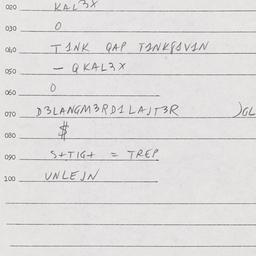 020 KAL3X
030 0
040 T1NK QAP T1NKG1V1N
050 - QKAL3X
060 0
070 D3LANGM3RD1LAJT3R )GL
080 $
090 S+TIG+ = TREP
100 UNLEJN